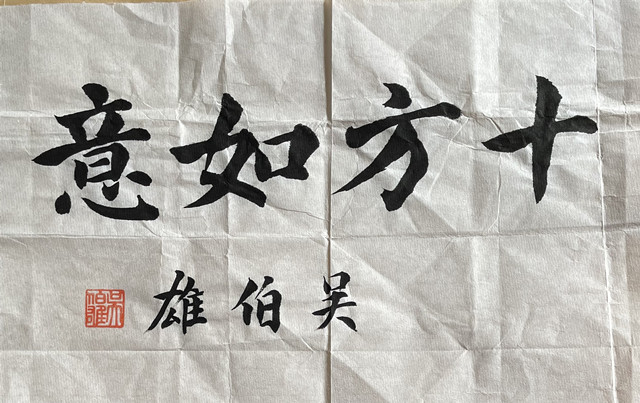 十方如意
吳伯雄
吳伯雄